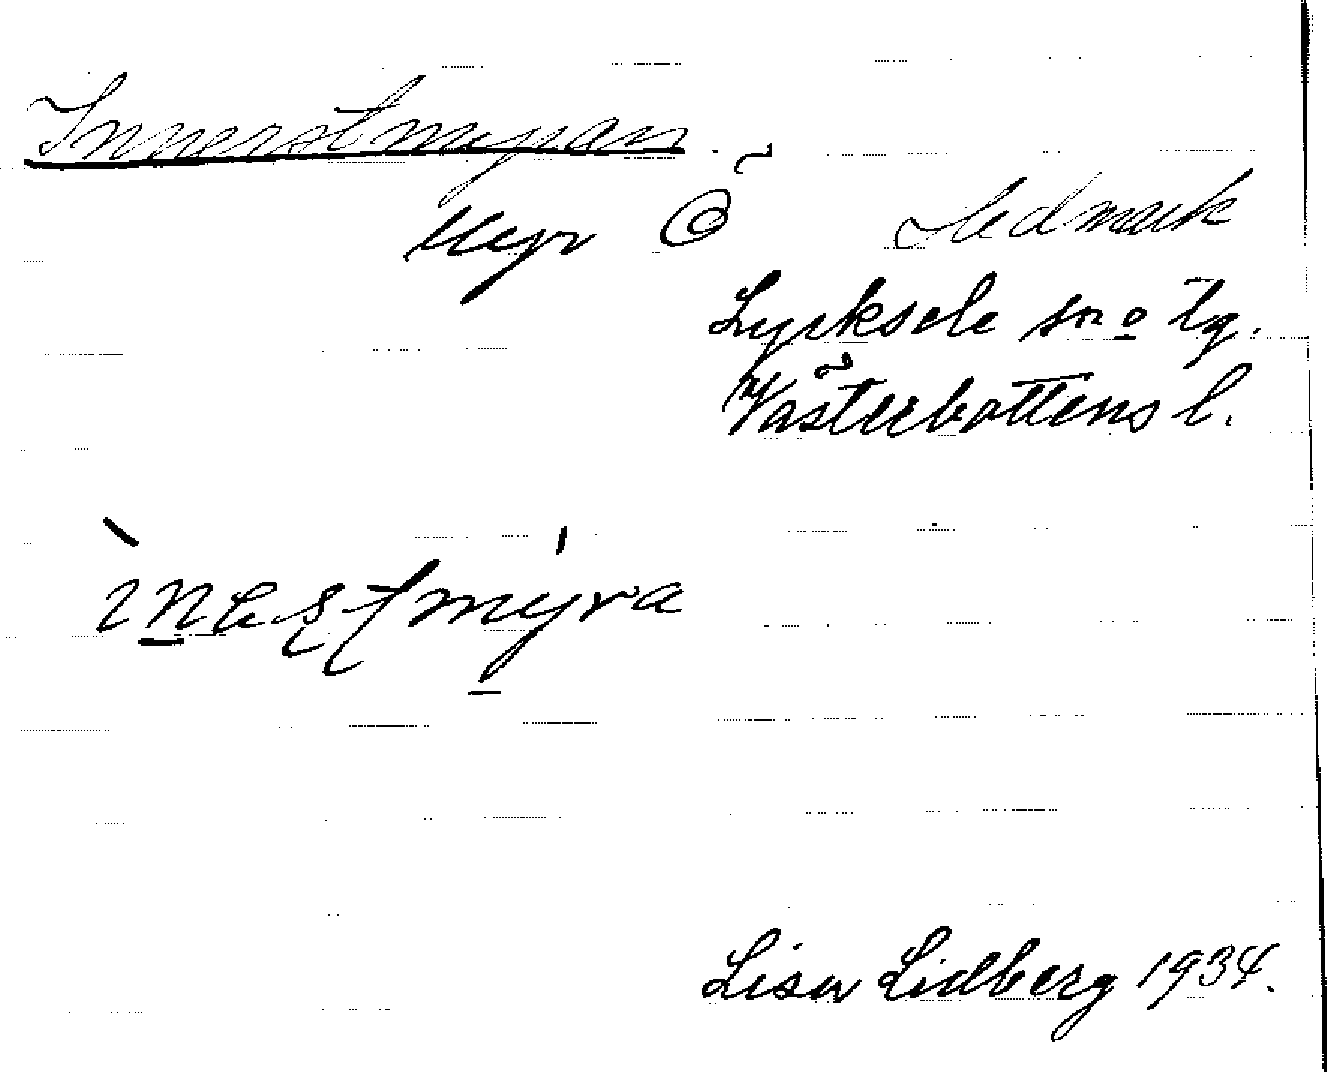 Innerstmyran
Myr Ö Sedmark
Lycksele sn o tg.
Västerbottens l.
ìnes̨tmý̱ra
Lisa Lidberg 1934.